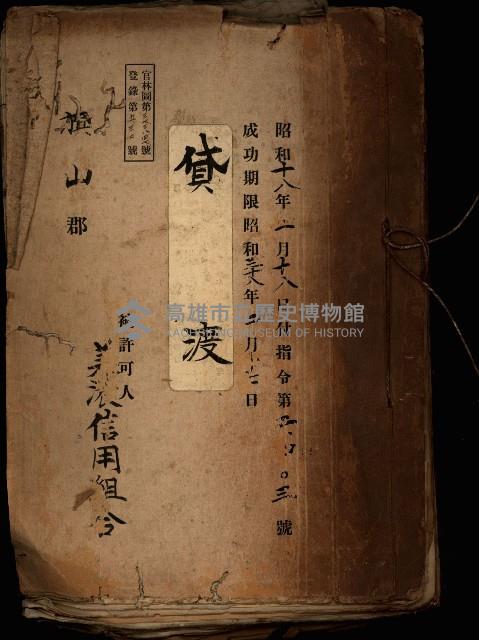 昭和十八年一月十八日付指令第四〇三號
成功期限昭和 年 月 日
官林圖第 號
登錄第 號
貸渡
旗山郡
被許可人
美濃信用組合
高雄市立歷史博物館
KAOHSIUNG MUSEUM OF HISTORY